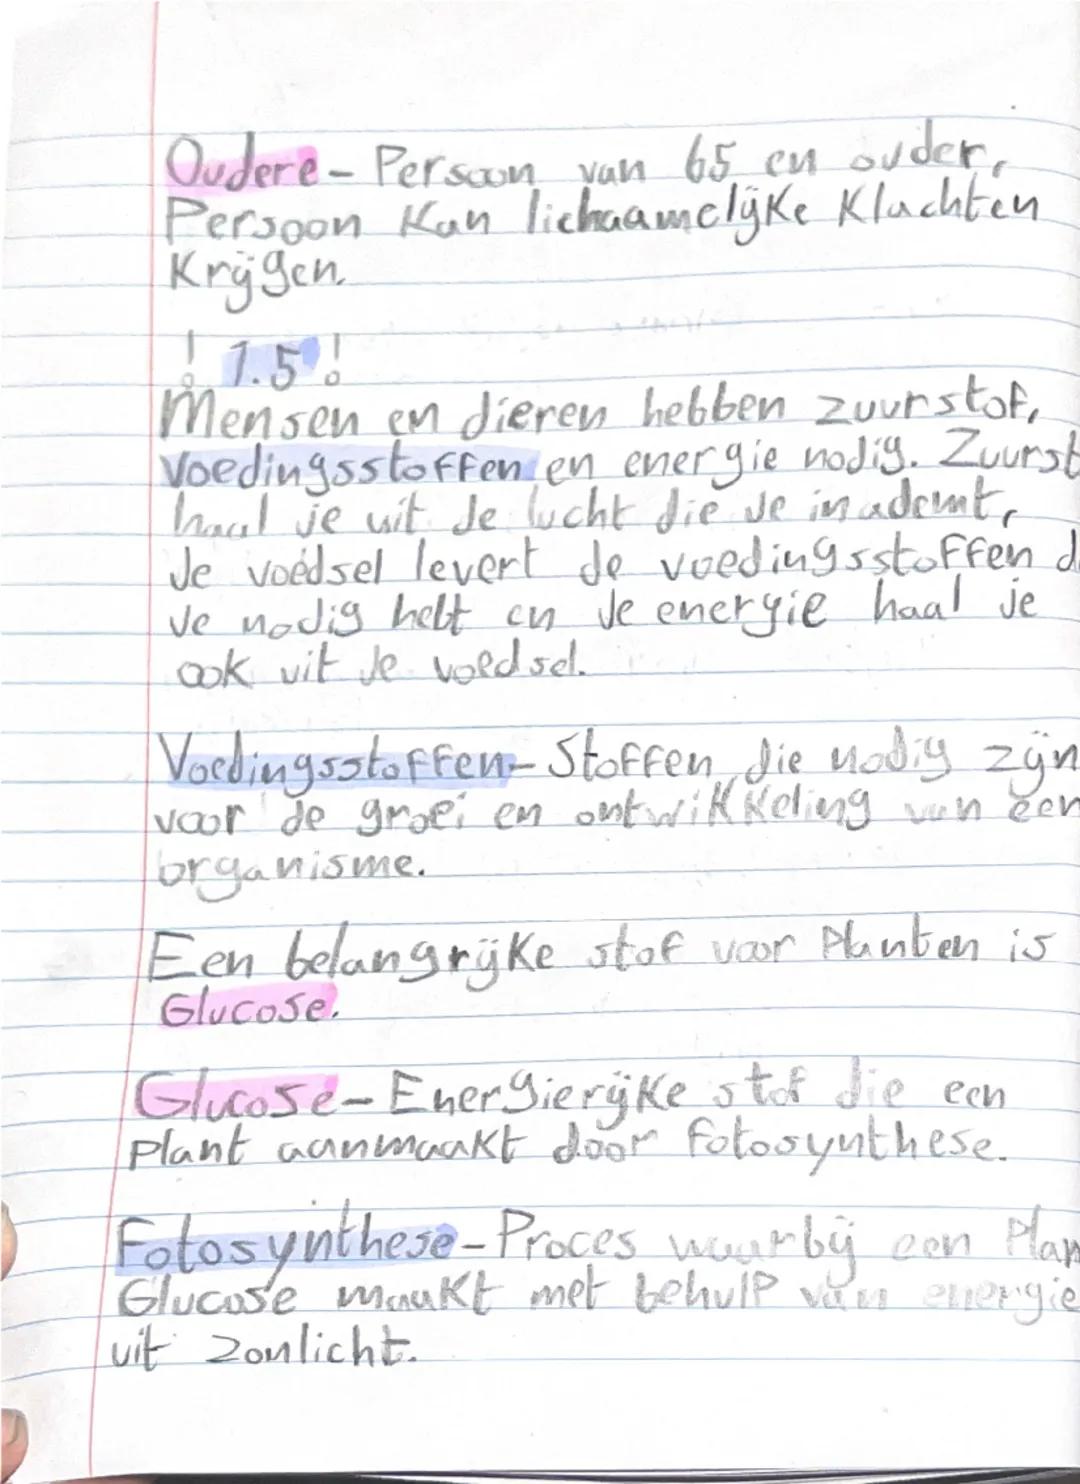 Oudere - Persoon van 65 en ouder,
Persoon Kan lichaamelijke Klachten
Krijgen.
! 1.5 !
Mensen en dieren hebben zuurstof,
voedingsstoffen en energie nodig. Zuurst
haal je uit de lucht die je inademt,
Je voedsel levert de voedingsstoffen d
je nodig hebt en de energie haal je
ook uit je voedsel.
Voedingsstoffen - Stoffen die nodig zijn
voor de groei en ontwikkeling van een
organisme.
Een belangrijke stof voor Planten is
Glucose.
Glucose - Energierijke stof die een
Plant aanmaakt door fotosynthese.
Fotosynthese - Proces waarbij een Plan
Glucose maakt met behulp van energie
uit zonlicht.